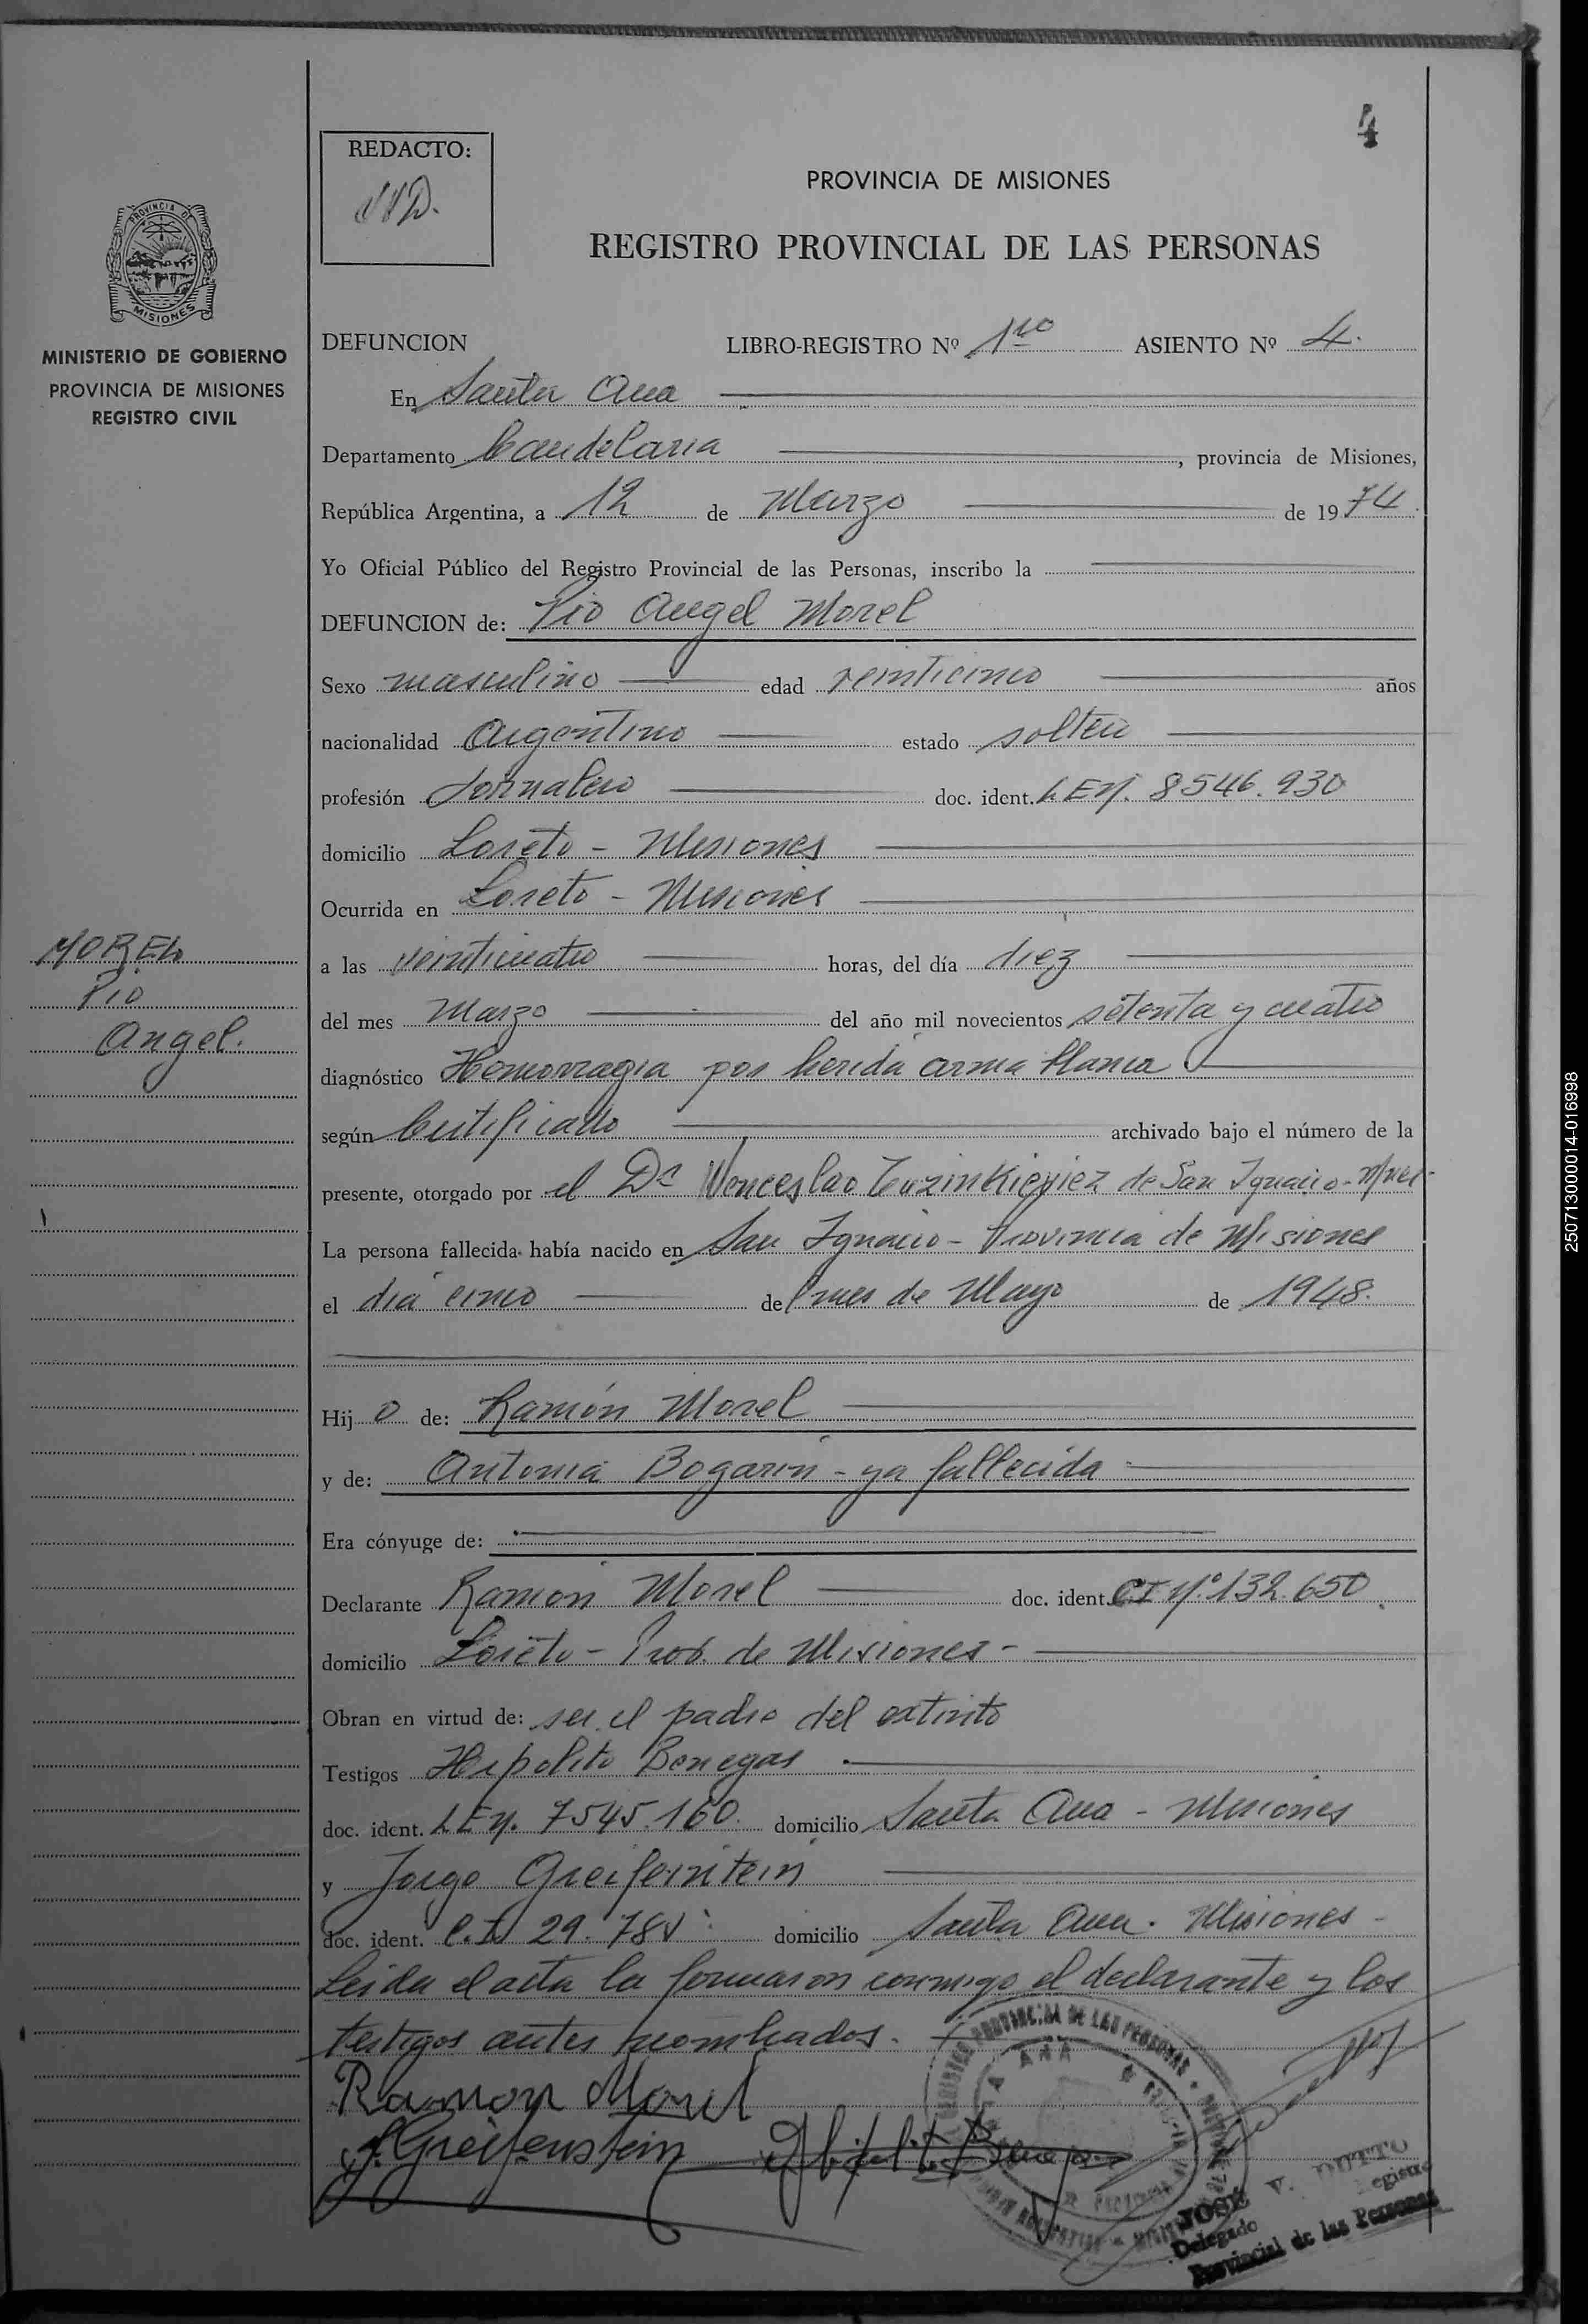 4
REDACTO:
PROVINCIA DE MISIONES
REGISTRO PROVINCIAL DE LAS PERSONAS
PROVINCIA DE
MISIONES
MINISTERIO DE GOBIERNO
PROVINCIA DE MISIONES
REGISTRO CIVIL
DEFUNCION LIBRO-REGISTRO Nº 1ro ASIENTO Nº 4.
En Santa Ana
Departamento Candelaria, provincia de Misiones,
República Argentina, a 12 de Marzo de 1974.
Yo Oficial Público del Registro Provincial de las Personas, inscribo la
DEFUNCION de: Pio Angel Morel
Sexo masculino edad veinticinco años
nacionalidad Argentino estado soltero
profesión Jornalero doc. ident. L.E.N. 8546.930
domicilio Loreto - Misiones
Ocurrida en Loreto - Misiones
MOREL
Pio
Angel.
a las veinticuatro horas, del día diez
del mes Marzo del año mil novecientos setenta y cuatro
diagnóstico Hemorragia por herida arma blanca
según Certificado archivado bajo el número de la
presente, otorgado por el Dr Wenceslao de San Ignacio -
La persona fallecida había nacido en San Ignacio - Provincia de Misiones
el día cinco del mes de Mayo de 1948.
Hijo de: Ramón Morel
y de: Antonia Bogarin - ya fallecida
Era cónyuge de:
Declarante Ramon Morel doc. ident. CI Nº 132.650.
domicilio Loreto - Prov. de Misiones -
Obran en virtud de: ser el padre del extinto
Testigos Hipolito Benegas
doc. ident. L.E.N. 7545.160. domicilio Santa Ana - Misiones
y Jorge Greifeinstein
doc. ident. C.I. 29. domicilio Santa Ana. Misiones -
Leida el acta la firmaron conmigo el declarante y los
testigos antes nombrados.
Ramon Morel
J. Greifenstein
PROVINCIAL DE LAS PERSONAS
JOSE V. DUTTO
Delegado Registro
Provincial de las Personas
250713000014-016998